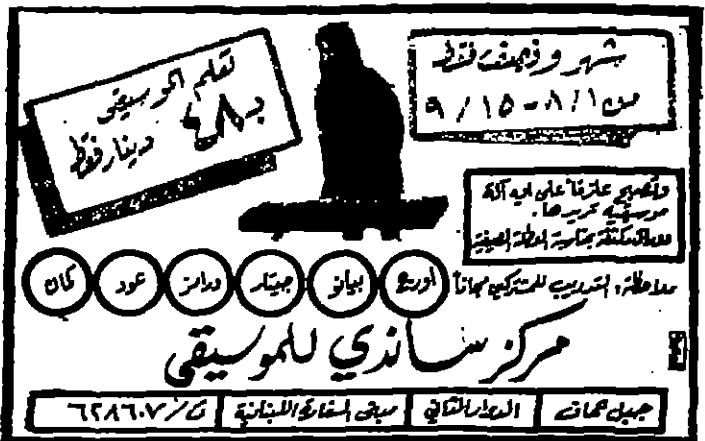 شهر ونصف فقط
من ٨/١ - ٩/١٥
تعلم الموسيقى
بـ ٤٨ دينار فقط
وتصبح عازفاً على أية آلة
موسيقية تريدها.
بمناسبة العطلة الصيفية
ملاحظة: التدريب للمشتركين مجاناً
أورج
بيانو
جيتار
درامز
عود
كمان
مركز ساندي للموسيقى
جبل عمان
الدوار الثاني
مبنى السفارة اللبنانية
ت/ ٦٢٨٦٠٧